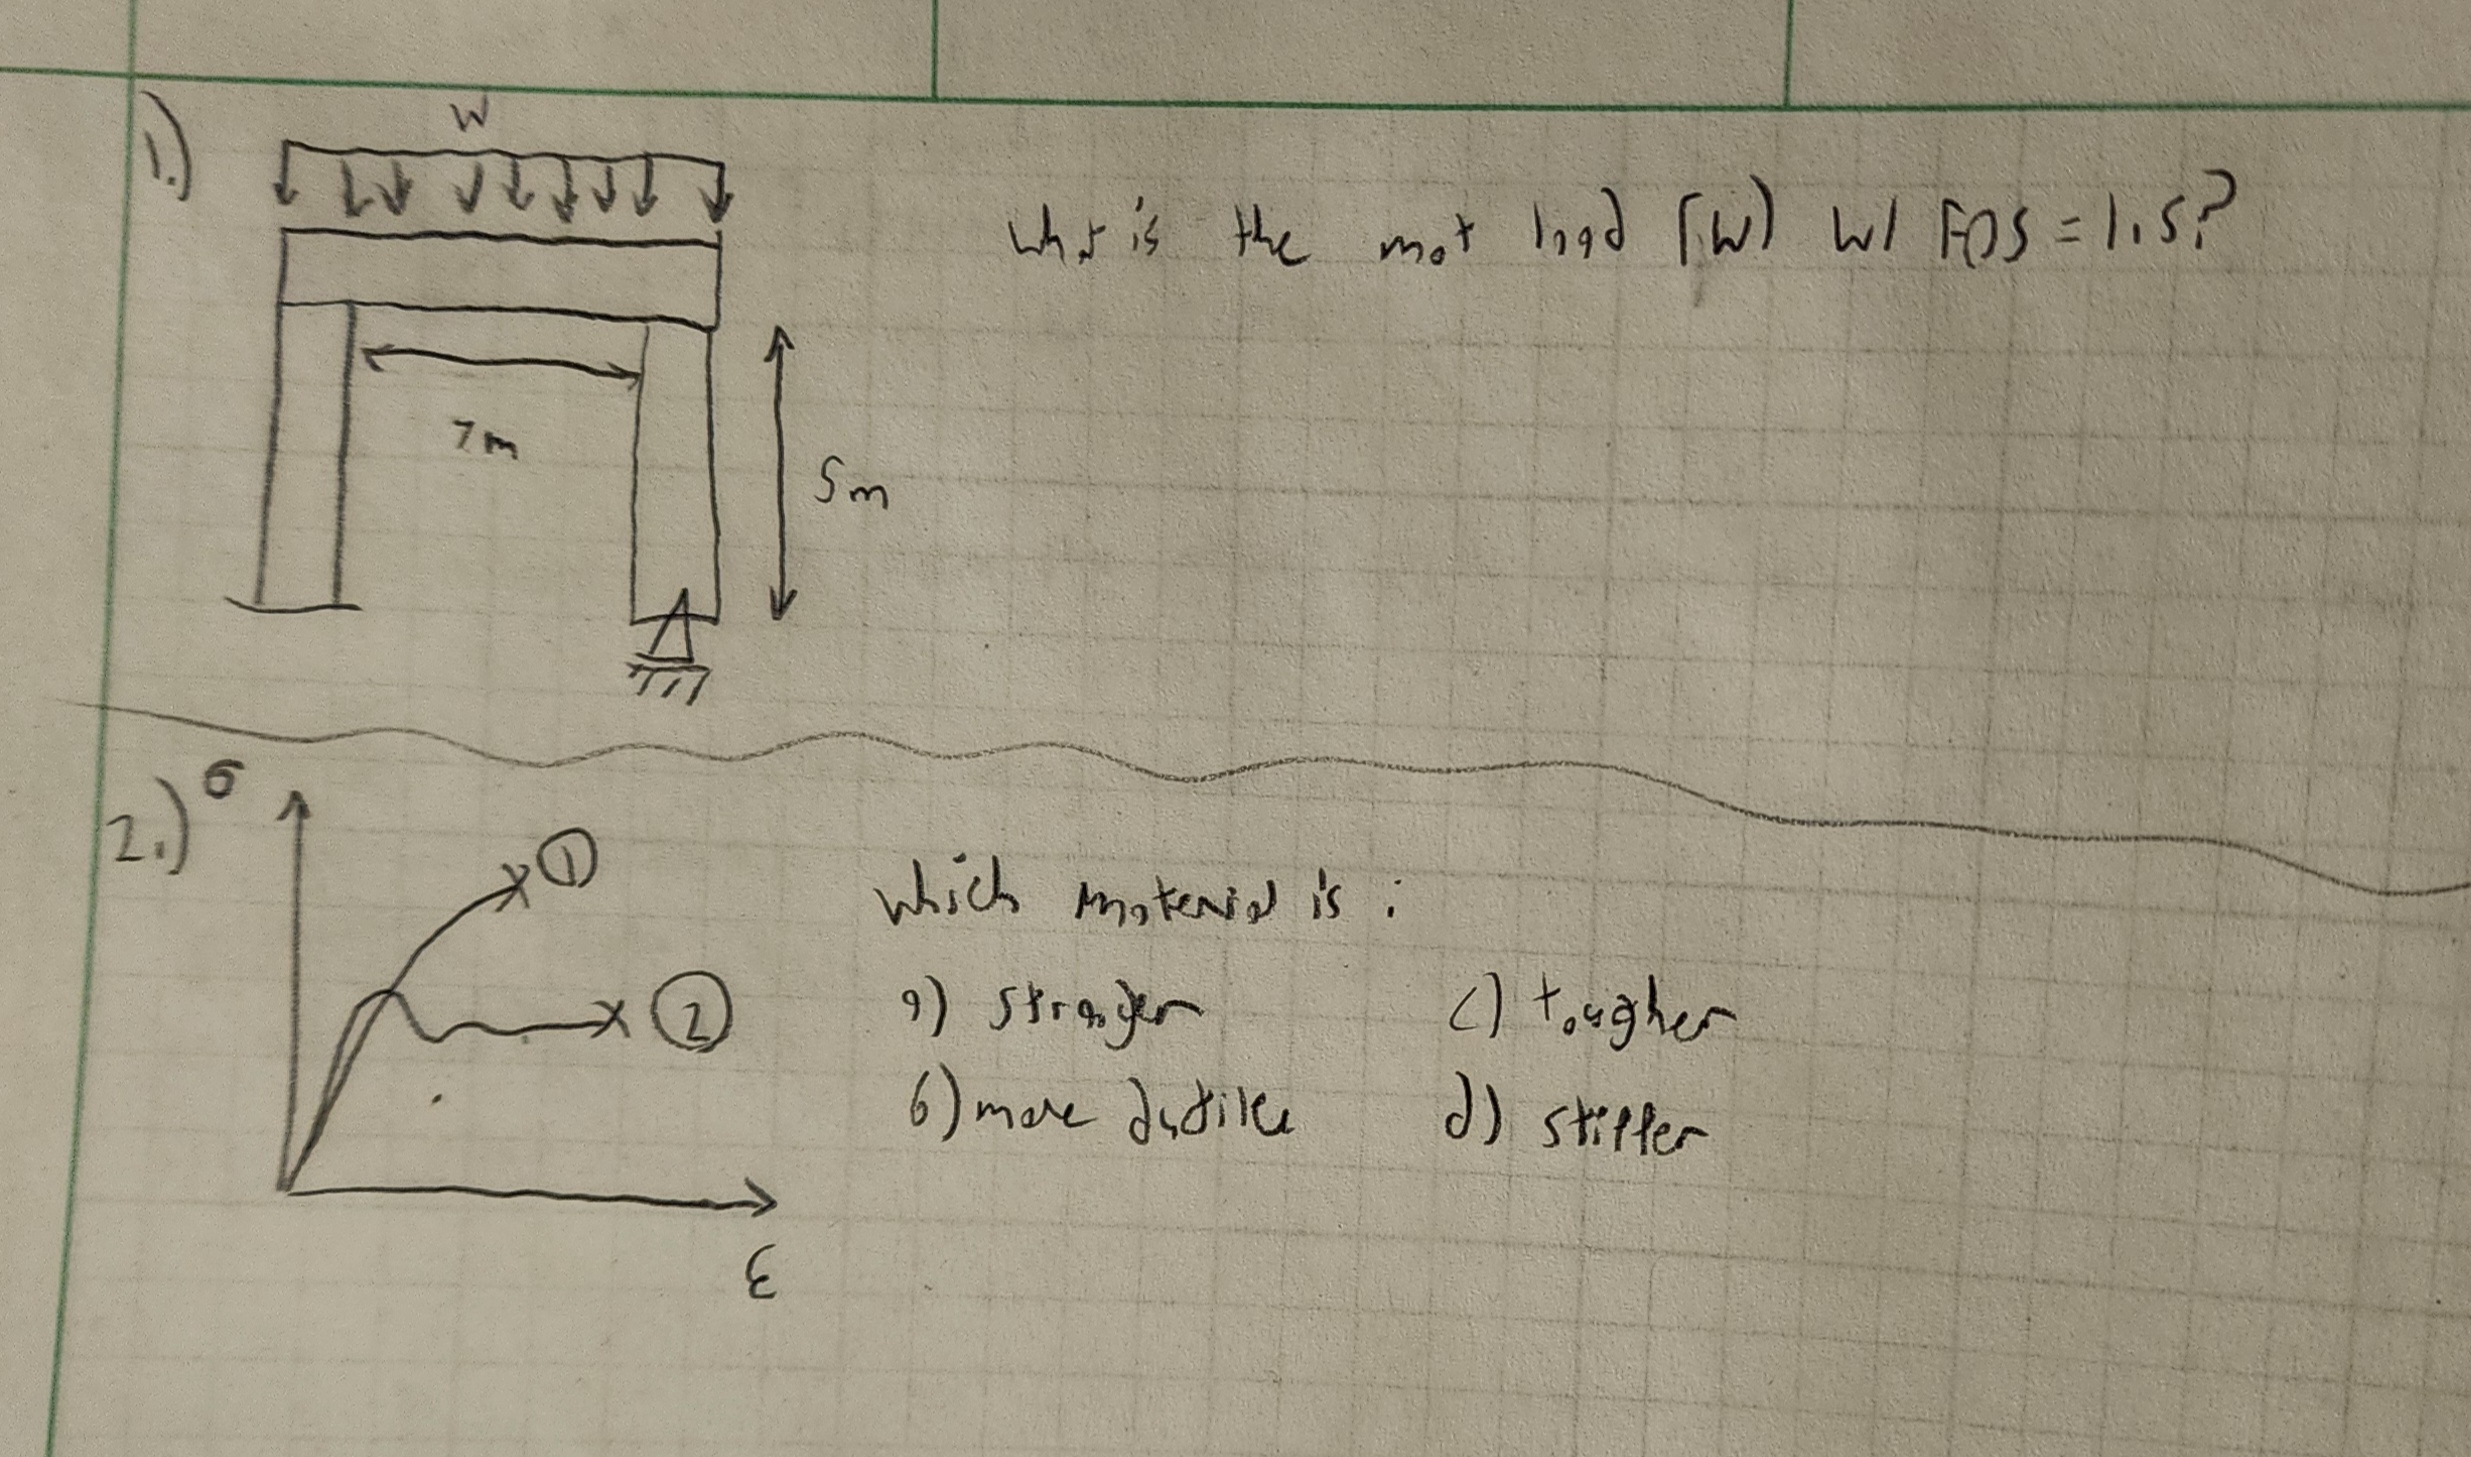 1.)
W
What is the max load (W) w/ FOS = 1.5?
7m
5m
2.)
σ
①
②
ε
Which material is:
a) stronger
b) more ductile
c) tougher
d) stiffer